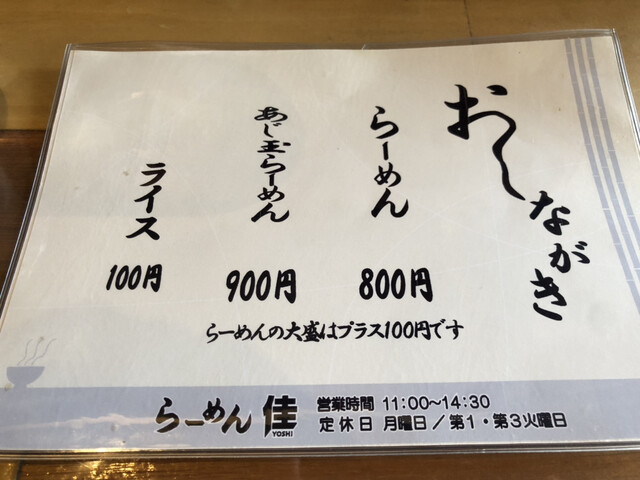 おしながき
らーめん
800円
あじ玉らーめん
900円
ライス
100円
らーめんの大盛はプラス100円です
らーめん 佳
YOSHI
営業時間 11:00～14:30
定休日 月曜日／第1・第3火曜日